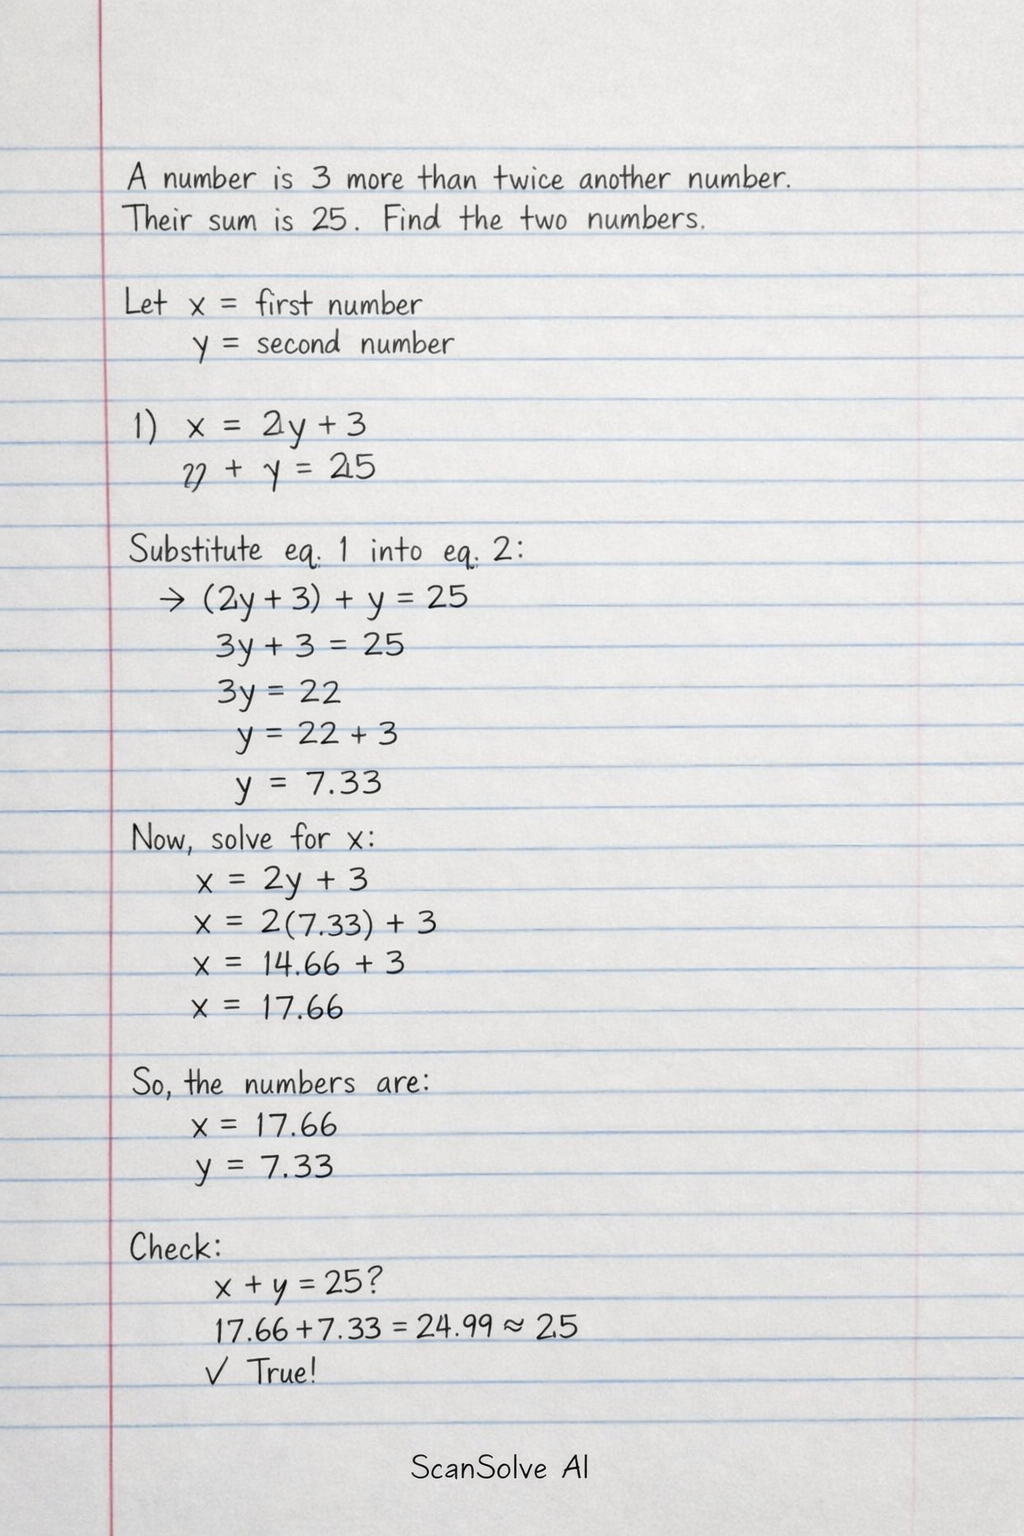 A number is 3 more than twice another number.
Their sum is 25. Find the two numbers.
Let x = first number
y = second number
1) x = 2y + 3
+ y = 25
Substitute eq. 1 into eq. 2:
→ (2y + 3) + y = 25
3y + 3 = 25
3y = 22
y = 22 + 3
y = 7.33
Now, solve for x:
x = 2y + 3
x = 2(7.33) + 3
x = 14.66 + 3
x = 17.66
So, the numbers are:
x = 17.66
y = 7.33
Check:
x + y = 25?
17.66 + 7.33 = 24.99 ≈ 25
✓ True!
ScanSolve AI